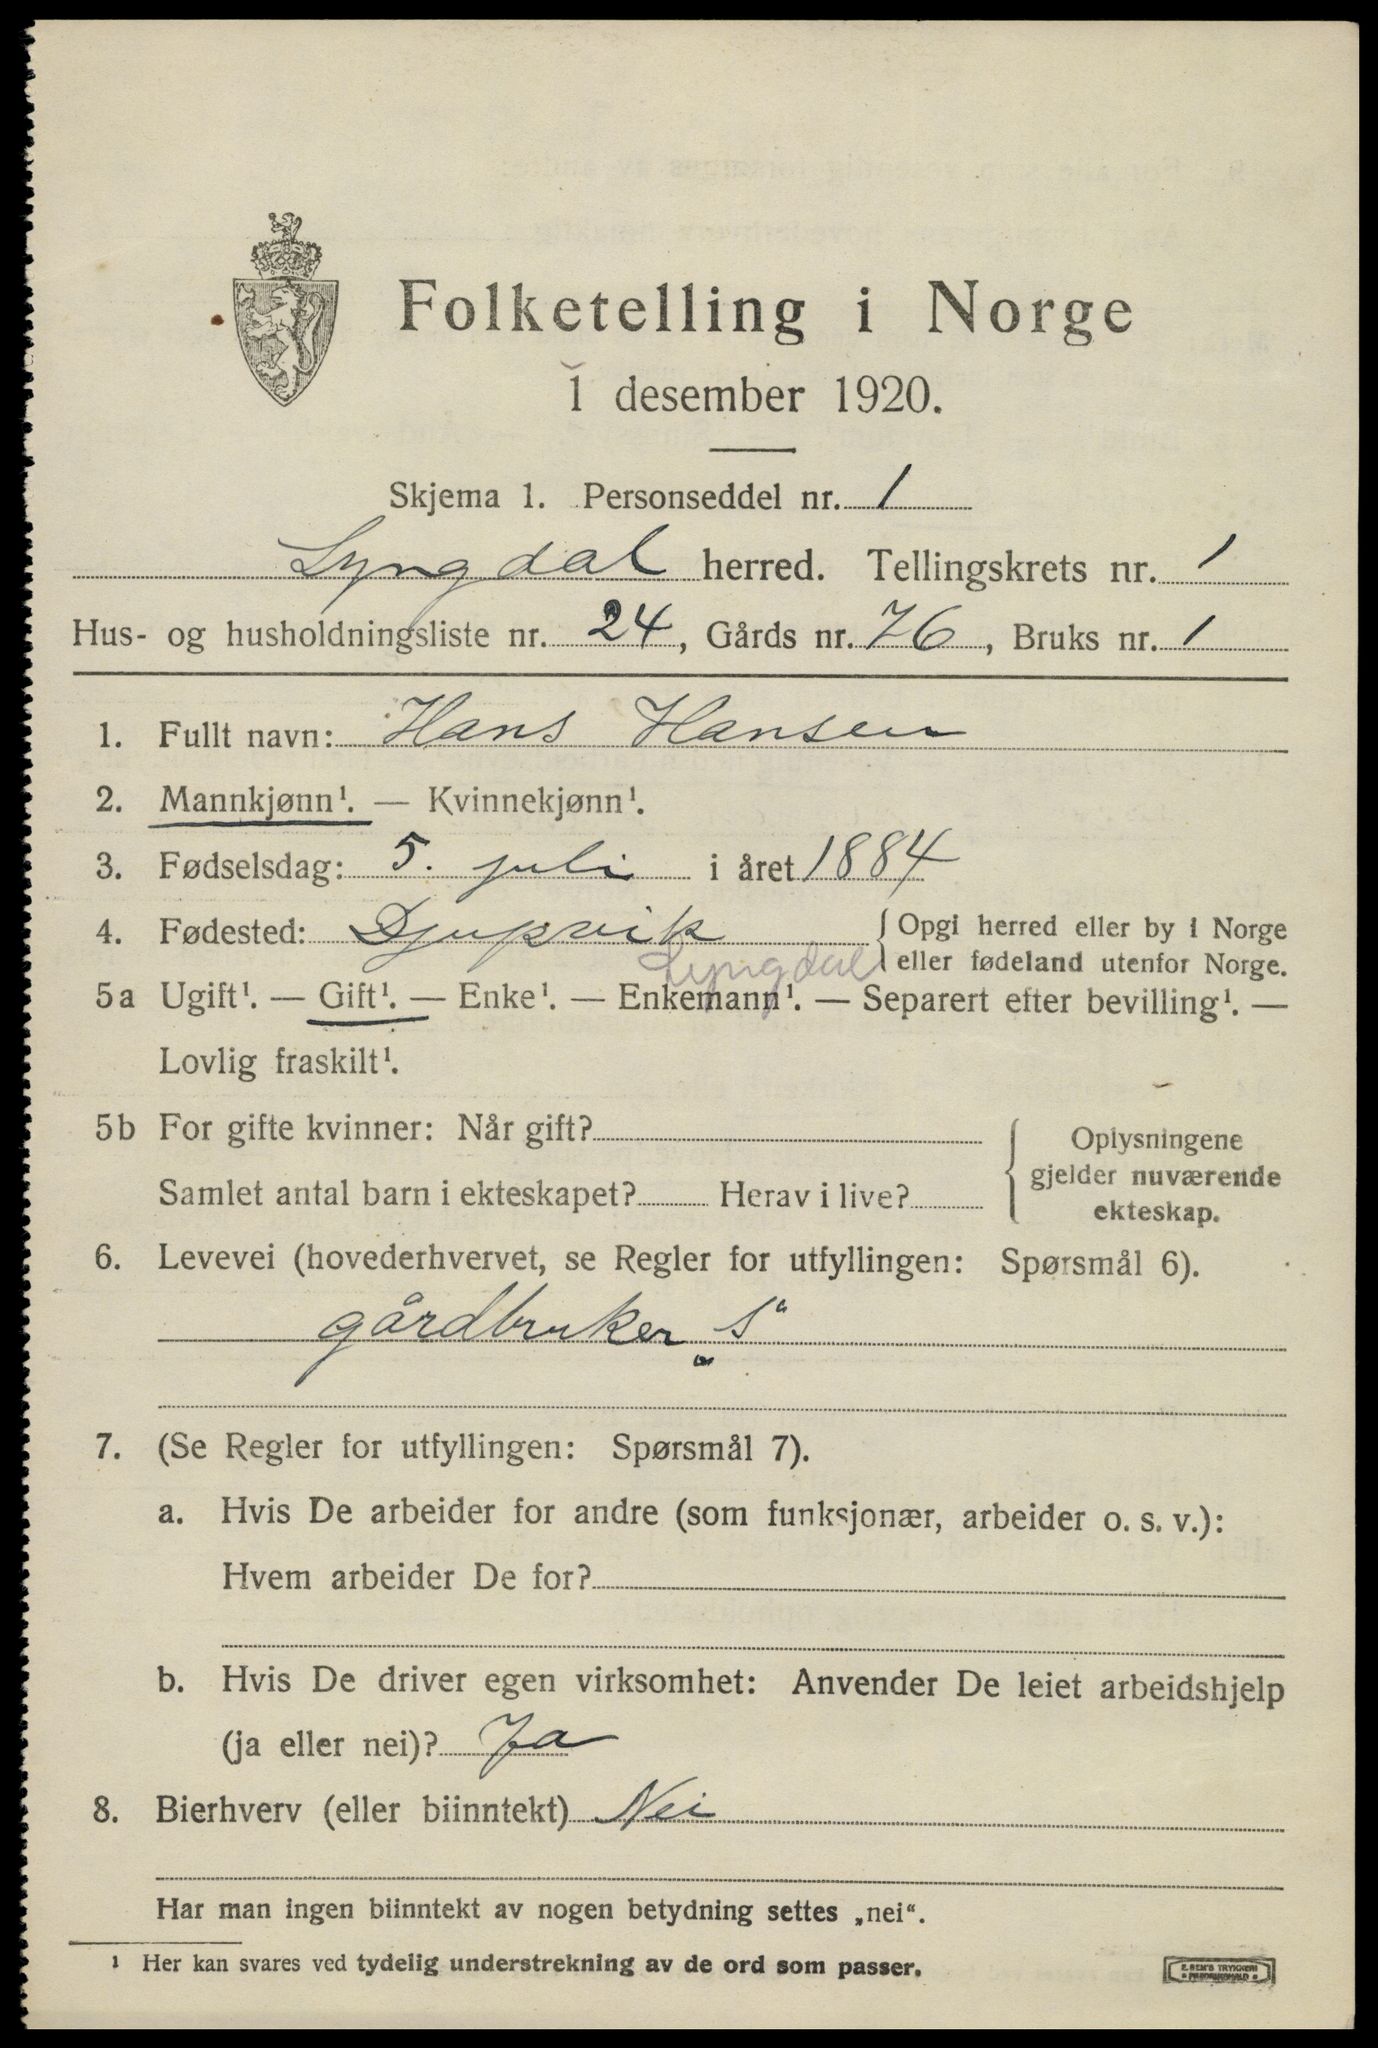 Folketelling i Norge
1 desember 1920.
Skjema 1. Personseddel nr. 1
Lyngdal herred. Tellingskrets nr. 1
Hus- og husholdningsliste nr. 24, Gårds nr. 76, Bruks nr. 1
1. Fullt navn: Hans Hansen
2. Mannkjønn¹. — Kvinnekjønn¹.
3. Fødselsdag: 5. juli i året 1884
4. Fødested: Djupvik { Opgi herred eller by i Norge
Lyngdal eller fødeland utenfor Norge.
5a Ugift¹. — Gift¹. — Enke¹. — Enkemann¹. — Separert efter bevilling¹. —
Lovlig fraskilt¹.
5b For gifte kvinner: Når gift?
Samlet antal barn i ekteskapet? Herav i live?
{ Oplysningene
gjelder nuværende
ekteskap.
6. Levevei (hovederhvervet, se Regler for utfyllingen: Spørsmål 6).
gårdbruker "s"
7. (Se Regler for utfyllingen: Spørsmål 7).
a. Hvis De arbeider for andre (som funksjonær, arbeider o. s. v.):
Hvem arbeider De for?
b. Hvis De driver egen virksomhet: Anvender De leiet arbeidshjelp
(ja eller nei)? Ja
8. Bierhverv (eller biinntekt) Nei
Har man ingen biinntekt av nogen betydning settes „nei".
¹ Her kan svares ved tydelig understrekning av de ord som passer.
E. SEM'S TRYKKERI
FREDRIKSHALD